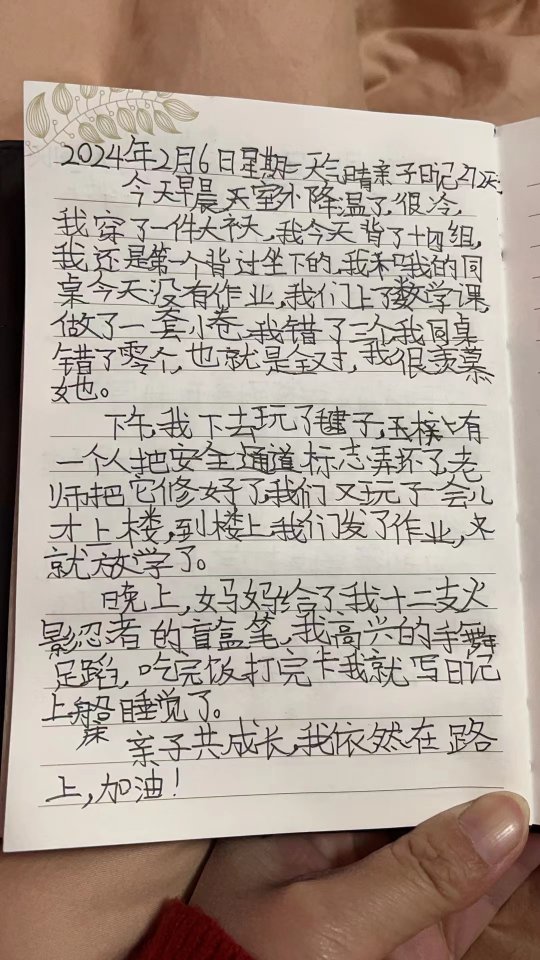 2024年2月6日星期二 天气晴 亲子日记272天
今天早晨天室外降温了,很冷,
我穿了一件大袄,我今天背了十四组,
我还是第一个背过坐下的,我和我的同
桌今天没有作业,我们上了数学课,
做了一套小卷,我错了三个,我同桌
错了零个,也就是全对,我很羡慕
她。
下午,我下去玩了毽子,玉 有
一个人把安全通道标志弄坏了,老
师把它修好了,我们又玩了一会儿
才上楼,到楼上我们发了作业,
就放学了。
晚上,妈妈给了我十二支火
影忍者的盲盒笔,我高兴的手舞
足蹈,吃完饭打完卡我就写日记
上床睡觉了。
亲子共成长,我依然在路
上,加油!